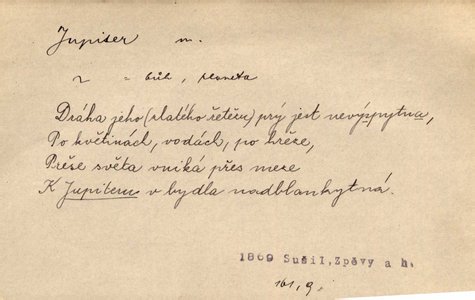 Jupiter m.
= bůh, planeta
Dráha jeho (zlatého řetězu) prý jest nevýpytna,
Po květinách, vodách, po hrěze,
Prěse světa vniká přes meze
K Jupiteru v bydla nadblankytná.
1869 Sušil, Zpěvy a h.
161, 9.